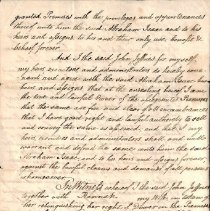 granted Premises with the priveleges and appurtenances
thereof unto him the said Abraham Isaac and to his
heirs and assigns to his and their only use, benefit &
behoof forever
And I the said John Jeffries for myself,
my heirs executors and administrators do hereby cove-
nant and agree with the said Abraham Isaac his
heirs and assigns that at the ensealing hereof I am
the true and lawful owner of the Premises
that the same are free and clear of all incumbrances
that I have good right and lawful authority to sell
and convey the same
heirs executors and administrators shall
the same unto him the said
Abraham Isaac, and to his heirs and assigns forever
against the lawful claims and demands of all persons
whomsoever
In Witness whereof I the said John Jeffries
together with Hannah my Wife in token of
her relinquishing her right of Dower in the